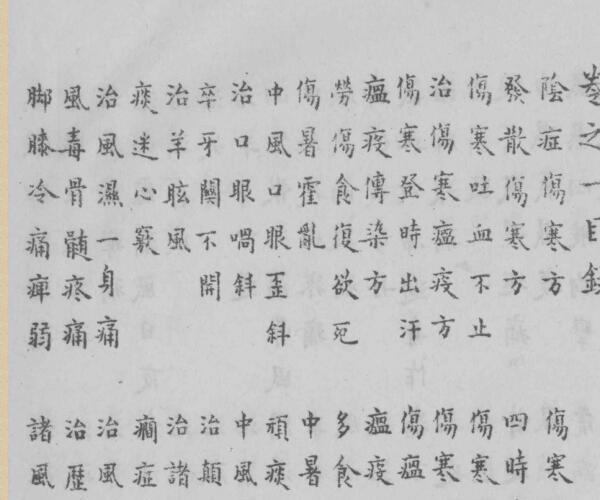 卷之一目錄
陰症傷寒方 傷寒
發散傷寒方 四時
傷寒吐血不止 傷寒
治傷寒瘟疫方 傷寒
傷寒登時出汗 傷瘟
瘟疫傳染方 瘟疫
勞傷食復欲死 多食
傷暑霍亂 中暑
中風口眼歪斜 頑痰
治口眼喎斜 中風
卒牙關不開 治顛
治羊眩風 治諸
痰迷心竅 癎症
治風濕一身痛 治風
風毒骨髓疼痛 治歷
脚膝冷痛痺弱 諸風